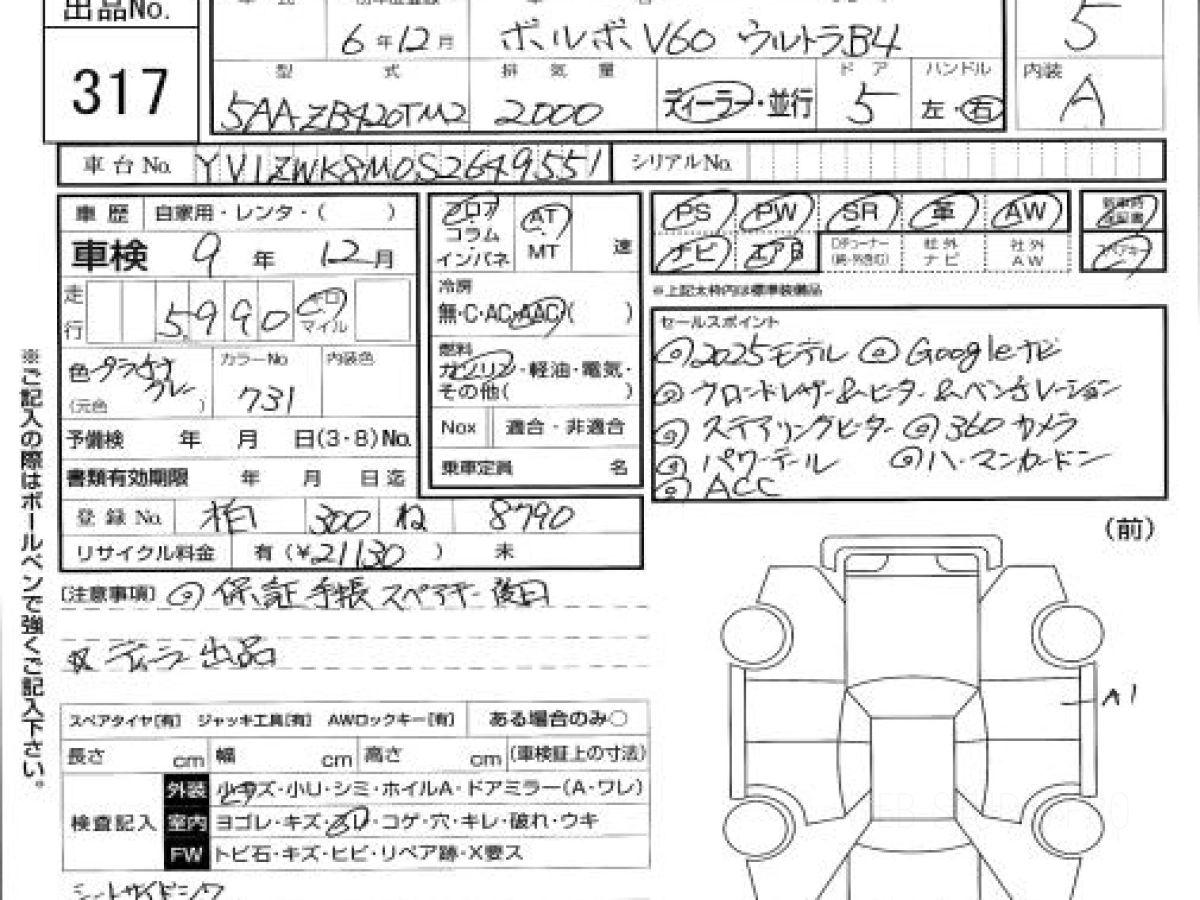 出品No.
317
6年12月 ボルボ V60 ウルトラB4
5
型式 排気量 ドア ハンドル 内装
5AA-ZB420TM2 2000 ディーラー・並行 5 左・右 A
車台No. YV1ZWK8M0S2649551 シリアルNo.
車歴 自家用・レンタ・( )
車検 9年 12月
走行 5990 キロ マイル
色 プラチナグレー (元色 ) カラーNo 731 内装色
予備検 年 月 日(3・8)No.
書類有効期限 年 月 日迄
登録No. 柏 300 ね 8790
リサイクル料金 有(¥21130 ) 未
フロア コラム インパネ AT MT 速
冷房
無・C・AC・AAC( )
燃料
ガソリン・軽油・電気・
その他( )
Nox 適合・非適合
乗車定員 名
PS PW SR 革 AW 新車時保証書
ナビ エアB Dチューナー 社外ナビ 社外AW スペアキー
※上記太枠内は標準装備品
セールスポイント
◎2025モデル ◎Googleナビ
◎フロントレザー&ヒーター&ベンチレーション
◎ステアリングヒーター ◎360カメラ
◎パワーテール ◎ハーマンカードン
◎ACC
(前)
[注意事項] ◎保証手帳 スペアキー 後日
ディーラー出品
スペアタイヤ[有] ジャッキ工具[有] AWロックキー[有] ある場合のみ○
長さ cm 幅 cm 高さ cm (車検証上の寸法)
検査記入
外装 小キズ・小U・シミ・ホイルA・ドアミラー(A・ワレ)
室内 ヨゴレ・キズ・スレ・コゲ・穴・キレ・破れ・ウキ
FW トビ石・キズ・ヒビ・リペア跡・X要ス
A1
※ご記入の際はボールペンで強くご記入下さい。